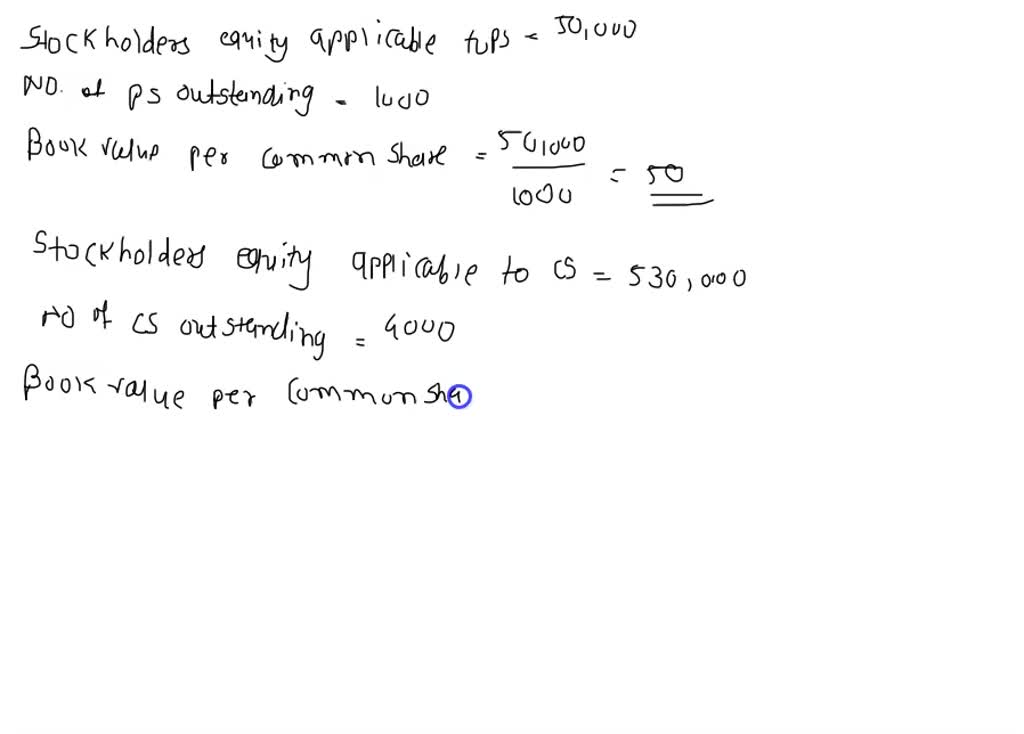 Stockholders equity applicable to PS = 50,000
NO. of PS outstanding = 1000
Book value per common share = 50,000 / 1000 = 50
Stockholders equity applicable to CS = 530,000
NO of CS outstanding = 4000
Book value per Common sha